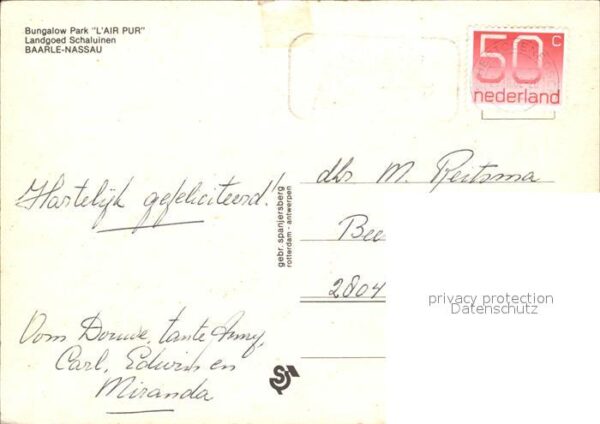 Bungalow Park "L'AIR PUR"
Landgoed Schaluinen
BAARLE-NASSAU
50 c
nederland
Hartelijk gefeliciteerd!
Oom Douwe, tante Anny,
Carl, Edwin en
Miranda
gebr. spanjersberg
rotterdam - antwerpen
dhr M. Reitsma
Bee
2804
privacy protection
Datenschutz